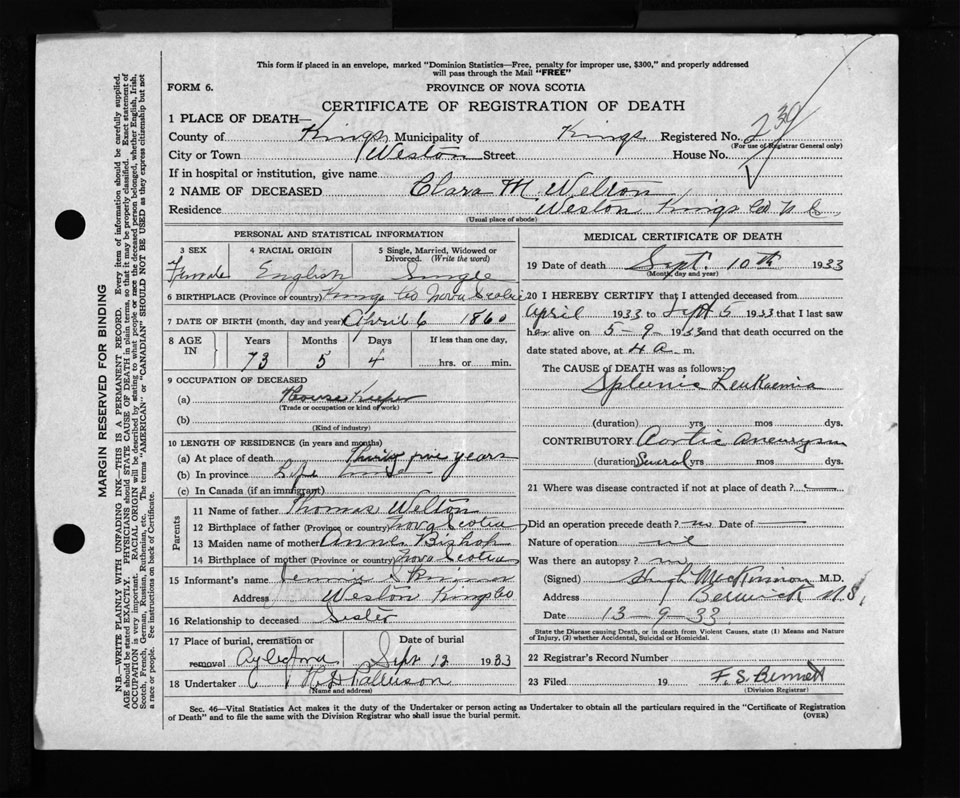 This form if placed in an envelope, marked "Dominion Statistics—Free, penalty for improper use, $300," and properly addressed
will pass through the Mail "FREE"
FORM 6.
PROVINCE OF NOVA SCOTIA
CERTIFICATE OF REGISTRATION OF DEATH
1 PLACE OF DEATH—
County of Kings Municipality of Kings Registered No. 239
(For use of Registrar General only)
City or Town Weston Street House No.
If in hospital or institution, give name
2 NAME OF DECEASED Clara M. Welton
Residence Weston Kings Co N S
(Usual place of abode)
PERSONAL AND STATISTICAL INFORMATION
3 SEX 4 RACIAL ORIGIN 5 Single, Married, Widowed or
Divorced. (Write the word)
Female English Single
6 BIRTHPLACE (Province or country) Kings Co Nova Scotia
7 DATE OF BIRTH (month, day and year) April 6 1860
8 AGE IN Years Months Days If less than one day,
73 5 4 hrs. or min.
9 OCCUPATION OF DECEASED
(a) House Keeper
(Trade or occupation or kind of work)
(b)
(Kind of industry)
10 LENGTH OF RESIDENCE (in years and months)
(a) At place of death Thirty five years
(b) In province Life
(c) In Canada (if an immigrant)
Parents
11 Name of father Thomas Welton
12 Birthplace of father (Province or country) Nova Scotia
13 Maiden name of mother Annie Bishop
14 Birthplace of mother (Province or country) Nova Scotia
15 Informant's name
Address Weston Kings Co
16 Relationship to deceased Sister
17 Place of burial, cremation or Date of burial
removal Aylesford Sept 12 1933
18 Undertaker
(Name and address)
MEDICAL CERTIFICATE OF DEATH
19 Date of death Sept. 10th 1933
(Month, day and year)
20 I HEREBY CERTIFY that I attended deceased from
April 1933 to Sept 5 1933 that I last saw
her alive on 5-9-1933 and that death occurred on
date stated above, at 4 a. m.
The CAUSE of DEATH was as follows:
Splenic Leukaemia
(duration) yrs mos dys.
CONTRIBUTORY Aortic aneurysm
(duration) Several yrs mos dys.
21 Where was disease contracted if not at place of death?
Did an operation precede death? no Date of
Nature of operation
Was there an autopsy? no
(Signed) Hugh McKinnon M.D.
Address Berwick N.S.
Date 13-9-33
State the Disease causing Death, or in death from Violent Causes, state (1) Means and Nature
of Injury, (2) whether Accidental, Suicidal or Homicidal.
22 Registrar's Record Number
23 Filed 19 F. S. Bennett
(Division Registrar)
Sec. 46—Vital Statistics Act makes it the duty of the Undertaker or person acting as Undertaker to obtain all the particulars required in the "Certificate of Registration
of Death" and to file the same with the Division Registrar who shall issue the burial permit. (OVER)
MARGIN RESERVED FOR BINDING
N.B.—WRITE PLAINLY WITH UNFADING INK—THIS IS A PERMANENT RECORD. Every item of information should be carefully supplied.
AGE should be stated EXACTLY. PHYSICIANS should STATE CAUSE OF DEATH in plain terms, so that it may be properly classified. Exact statement of
OCCUPATION is very important. RACIAL ORIGIN will be described by stating to what people or race the deceased person belonged, whether English, Irish,
Scotch, French, German, Russian, Ruthenian, etc. The terms "AMERICAN" or "CANADIAN" SHOULD NOT BE USED as they express citizenship but not
a race or people. See instructions on back of Certificate.